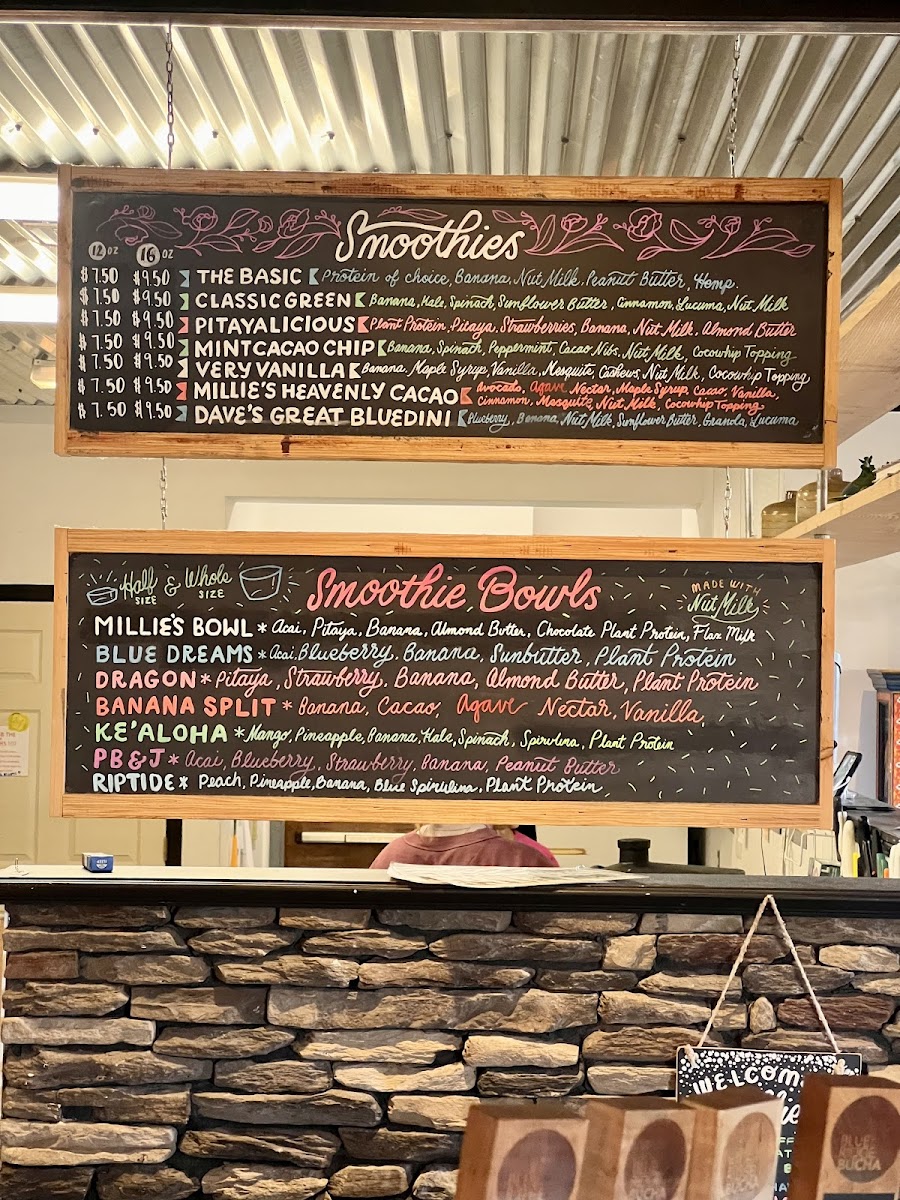 Smoothies
12 OZ 16 OZ
$7.50 $9.50 THE BASIC Protein of choice, Banana, Nut Milk, Peanut Butter, Hemp.
$7.50 $9.50 CLASSIC GREEN Banana, Kale, Spinach, Sunflower Butter, Cinnamon, Lucuma, Nut Milk
$7.50 $9.50 PITAYALICIOUS Plant Protein, Pitaya, Strawberries, Banana, Nut Milk, Almond Butter
$7.50 $9.50 MINT CACAO CHIP Banana, Spinach, Peppermint, Cacao Nibs, Nut Milk, Cocowhip Topping
$7.50 $9.50 VERY VANILLA Banana, Maple Syrup, Vanilla, Mesquite, Cashews, Nut Milk, Cocowhip Topping
$7.50 $9.50 MILLIE'S HEAVENLY CACAO Avocado, Agave Nectar, Maple Syrup, Cacao, Vanilla,
Cinnamon, Mesquite, Nut Milk, Cocowhip Topping
$7.50 $9.50 DAVE'S GREAT BLUEDINI Blueberry, Banana, Nut Milk, Sunflower Butter, Granola, Lucuma
Half SIZE & Whole SIZE
Smoothie Bowls
MADE WITH
Nut Milk
MILLIE'S BOWL * Acai, Pitaya, Banana, Almond Butter, Chocolate Plant Protein, Flax Milk
BLUE DREAMS * Acai, Blueberry, Banana, Sunbutter, Plant Protein
DRAGON * Pitaya, Strawberry, Banana, Almond Butter, Plant Protein
BANANA SPLIT * Banana, Cacao, Agave Nectar, Vanilla,
KE'ALOHA * Mango, Pineapple, Banana, Kale, Spinach, Spirulina, Plant Protein
PB&J * Acai, Blueberry, Strawberry, Banana, Peanut Butter
RIPTIDE * Peach, Pineapple, Banana, Blue Spirulina, Plant Protein
WELCOME
BLUE
RIDGE
BUCHA